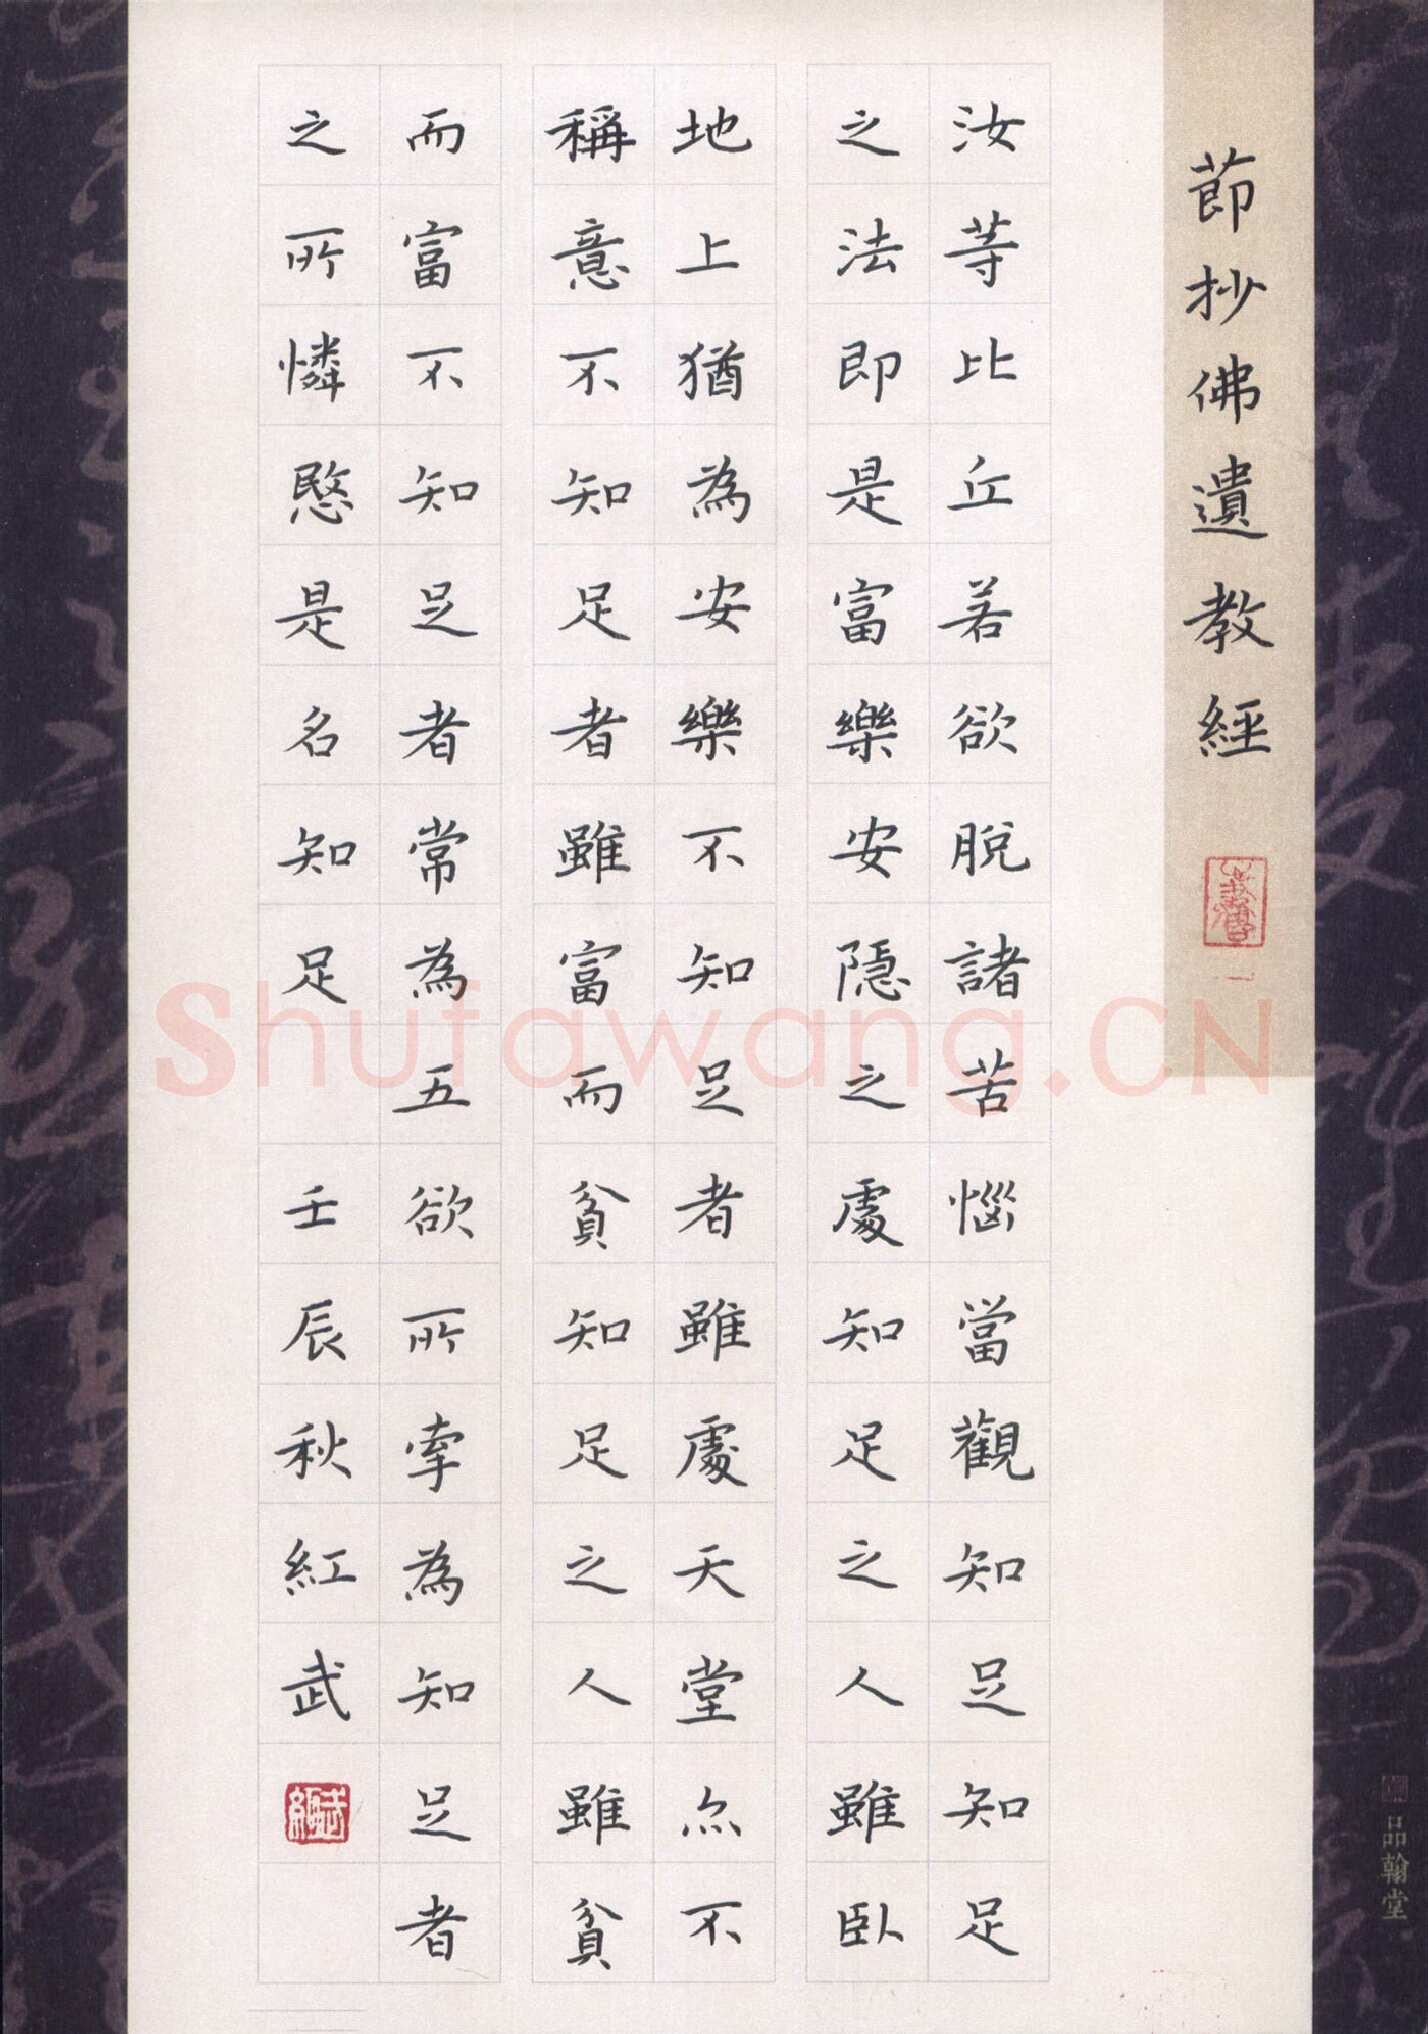 節抄佛遺教經
汝等比丘若欲脫諸苦惱當觀知足知足
之法即是富樂安隱之處知足之人雖臥
地上猶為安樂不知足者雖處天堂亦不
稱意不知足者雖富而貧知足之人雖貧
而富不知足者常為五欲所牽為知足者
之所憐愍是名知足 壬辰秋紅武
Shufawang.CN
品翰堂